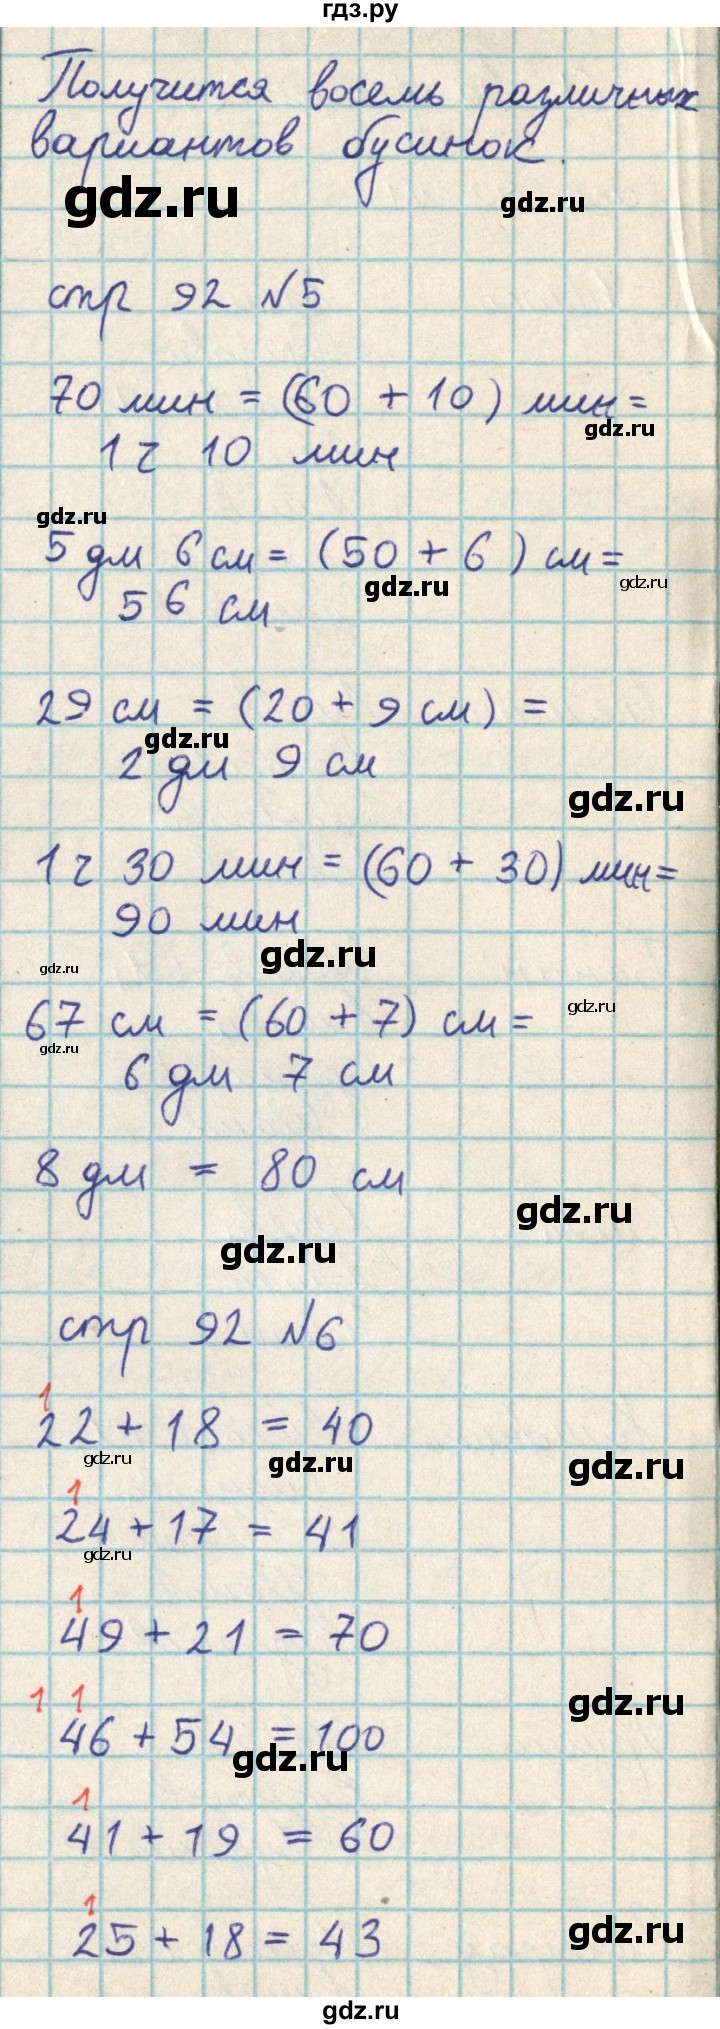 гдз.ру
Получится восемь различных
вариантов бусинок.
gdz.ru
gdz.ru
стр 92 №5
70 мин = (60 + 10) мин =
gdz.ru
1 ч 10 мин
gdz.ru
5 дм 6 см = (50 + 6) см =
gdz.ru
gdz.ru
56 см
29 см = (20 + 9 см) =
gdz.ru
2 дм 9 см
gdz.ru
1 ч 30 мин = (60 + 30) мин =
90 мин
gdz.ru
gdz.ru
gdz.ru
67 см = (60 + 7) см =
gdz.ru
6 дм 7 см
8 дм = 80 см
gdz.ru
gdz.ru
стр 92 №6
1
22 + 18 = 40
gdz.ru
gdz.ru
gdz.ru
1
24 + 17 = 41
gdz.ru
1
49 + 21 = 70
1 1
gdz.ru
46 + 54 = 100
gdz.ru
1
41 + 19 = 60
1
25 + 18 = 43
gdz.ru
gdz.ru